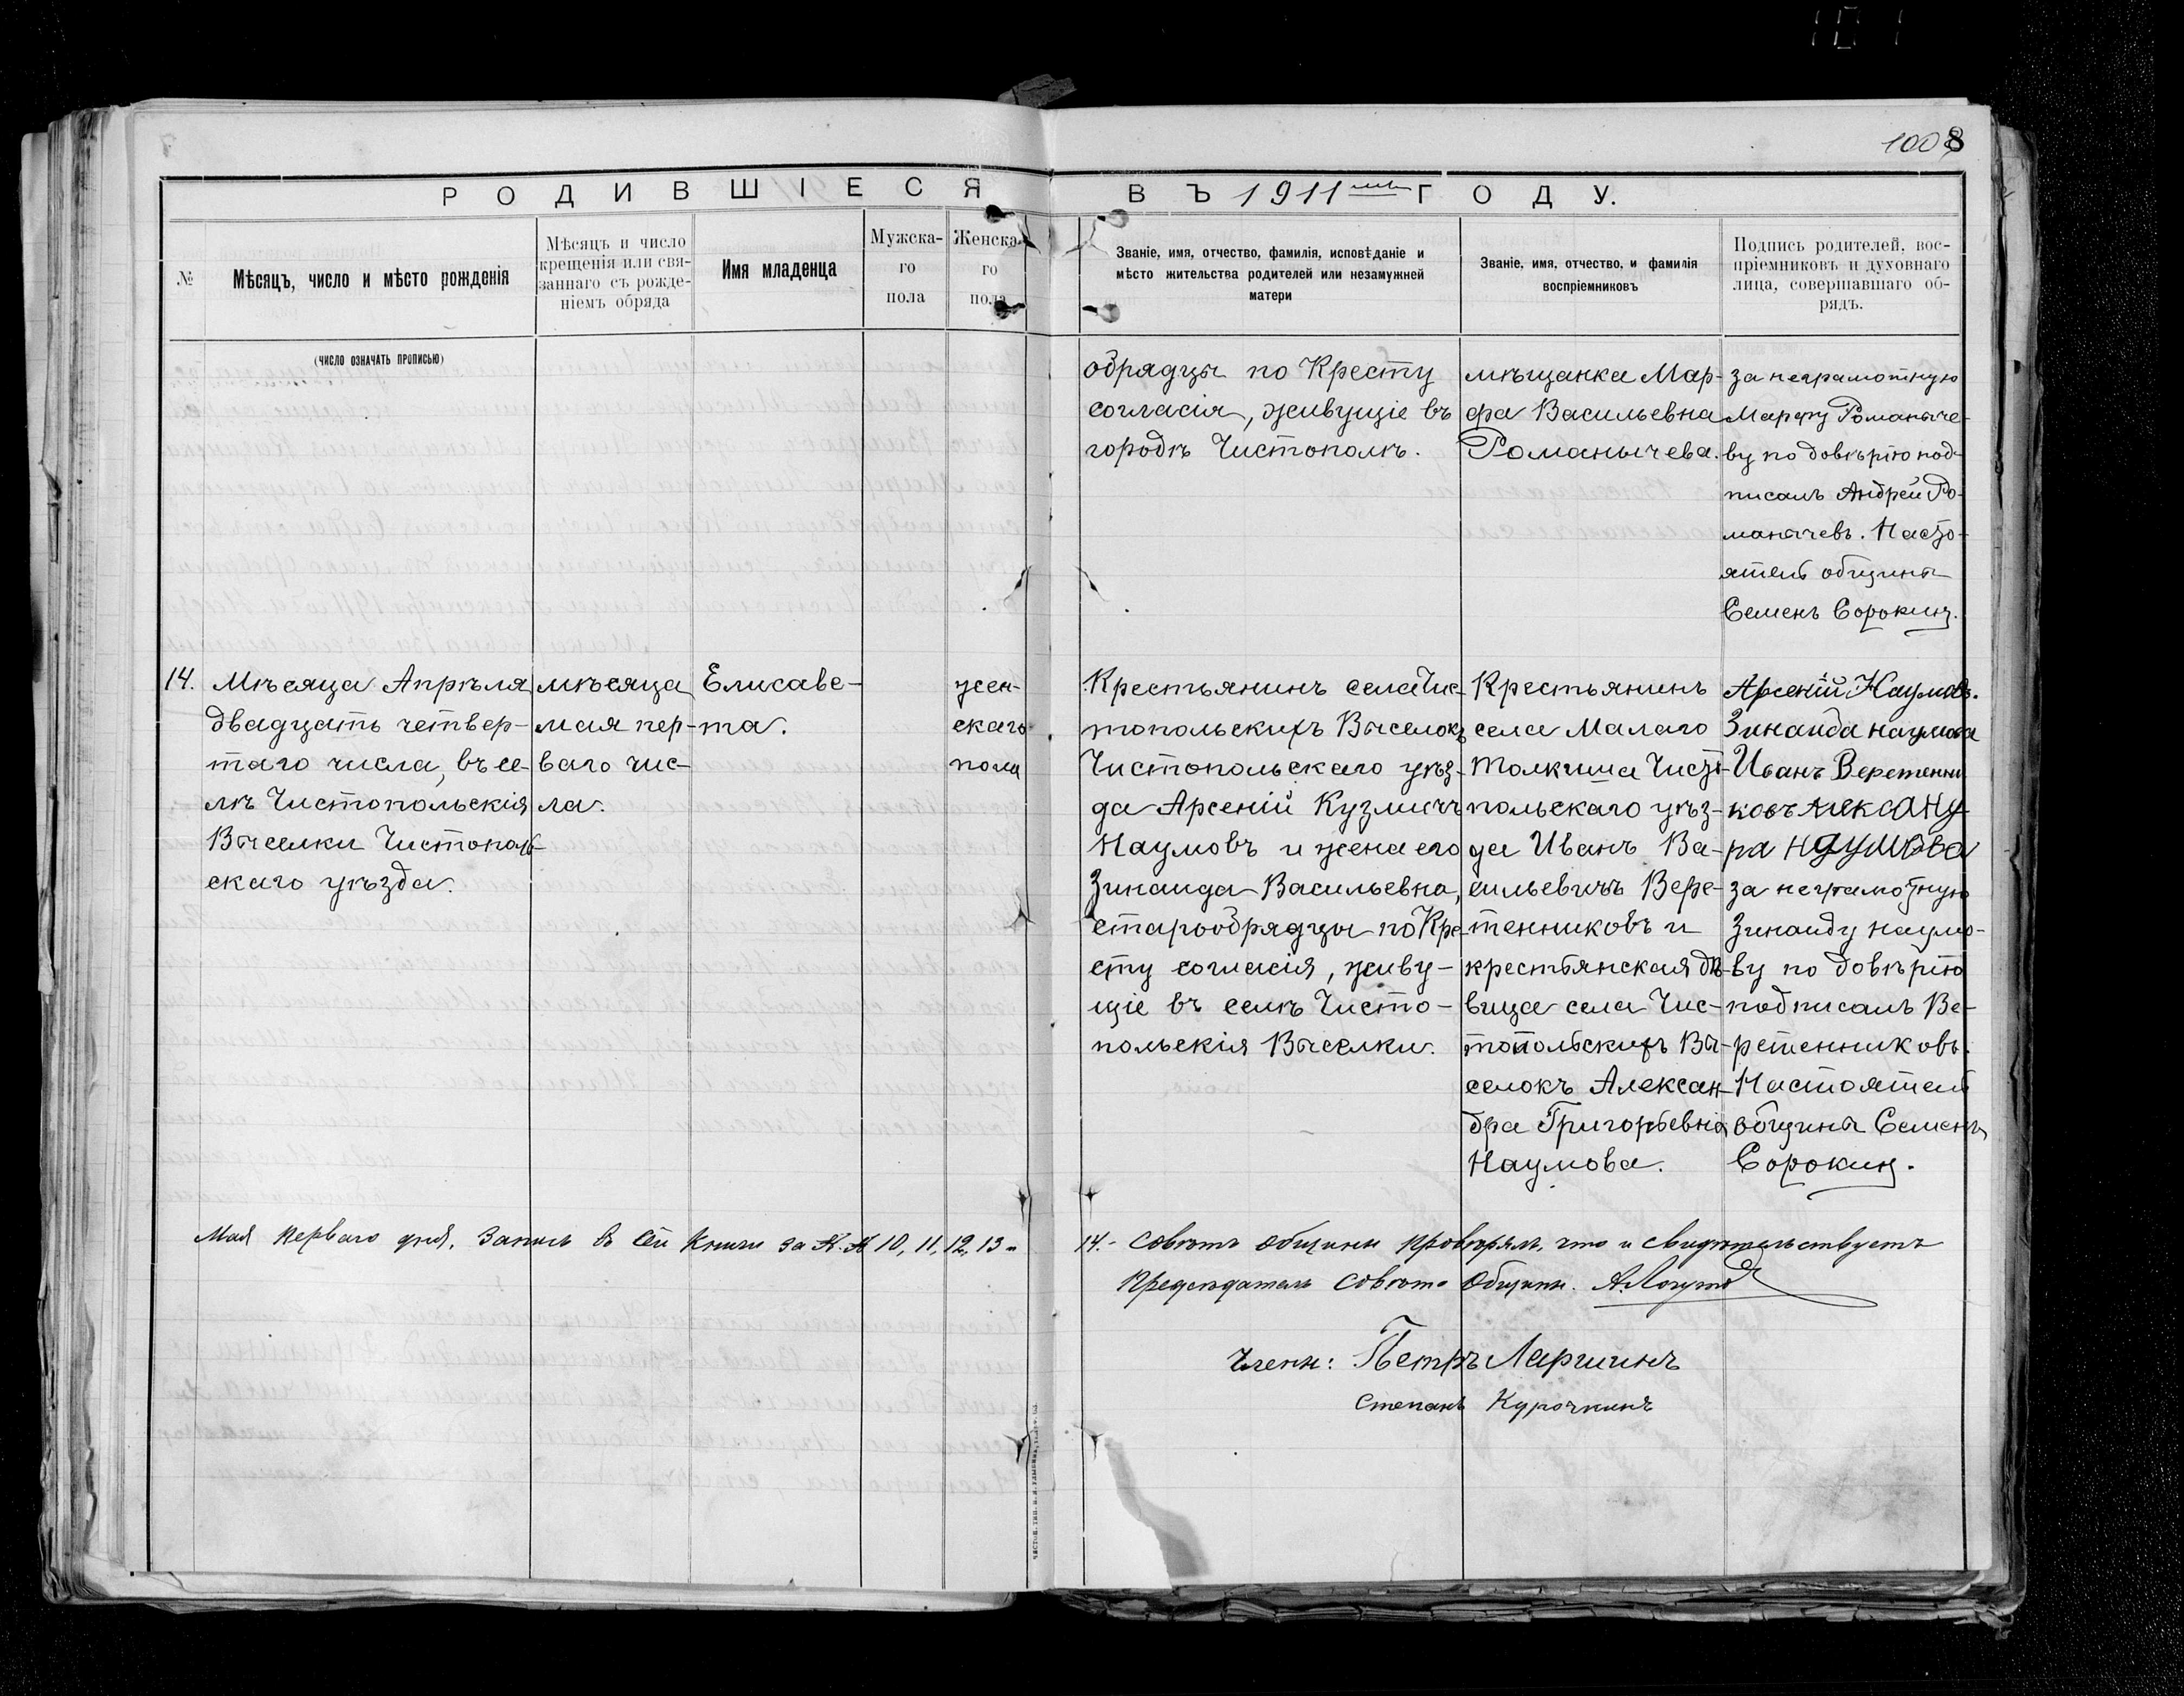 1008
РОДИВШІЕСЯ ВЪ 1911 ГОДУ.
№
Мѣсяцъ, число и мѣсто рожденія
Мѣсяцъ и число
крещенія или свя-
заннаго съ рожде-
ніемъ обряда
Имя младенца
Мужска-
го
пола
Женска-
го
пола
Званіе, имя, отчество, фамилія, исповѣданіе и
мѣсто жительства родителей или незамужней
матери
Званіе, имя, отчество, и фамилія
воспріемниковъ
Подпись родителей, вос-
пріемниковъ и духовнаго
лица, совершавшаго об-
рядъ.
(число означать прописью)
обрядцы по Кресту
согласія, живущіе въ
городѣ Чистополѣ.
мѣщанка Мар-
фа Васильевна
Романычева.
за неграмотную
Марфу Романыче-
ву по довѣрію под-
писалъ Андрей Ро-
манычевъ. Насто-
ятель общины
Семенъ Сорокинъ.
14.
Мѣсяца Апрѣля
двадцать четвер-
таго числа, въ се-
лѣ Чистопольскія
Выселки Чистополь-
скаго уѣзда.
мѣсяца
мая пер-
ваго чис-
ла.
Елисаве-
та.
жен-
скаго
пола
Крестьянинъ села Чис-
топольскихъ Выселокъ
Чистопольскаго уѣз-
да Арсеній Кузмичъ
Наумовъ и жена его
Зинаида Васильевна,
старообрядцы по Кре-
сту согласія, живу-
щіе въ селѣ Чисто-
польскія Выселки.
Крестьянинъ
села Малаго
Толкиша Чисто-
польскаго уѣз-
да Иванъ Ва-
сильевичъ Вере-
тенниковъ и
крестьянская дѣ-
вица села Чис-
топольскихъ Вы-
селокъ Алексан-
дра Григорьевна
Наумова.
Арсеній Наумовъ.
Зинаида Наумова
Иванъ Веретенни
ковъ Александ
ра Наумова
за неграмотную
Зинаиду Наумо-
ву по довѣрію
подписалъ Ве-
ретенниковъ.
Настоятель
общины Семенъ
Сорокинъ.
Мая перваго дня. Запись въ сей книги за №.№ 10, 11, 12, 13 и
14.- Совѣтъ общины провѣрялъ, что и свидѣтельствуетъ
Предсѣдатель Совѣта Общины.
Члены: Петръ Ларшинъ
Степанъ Курочкинъ